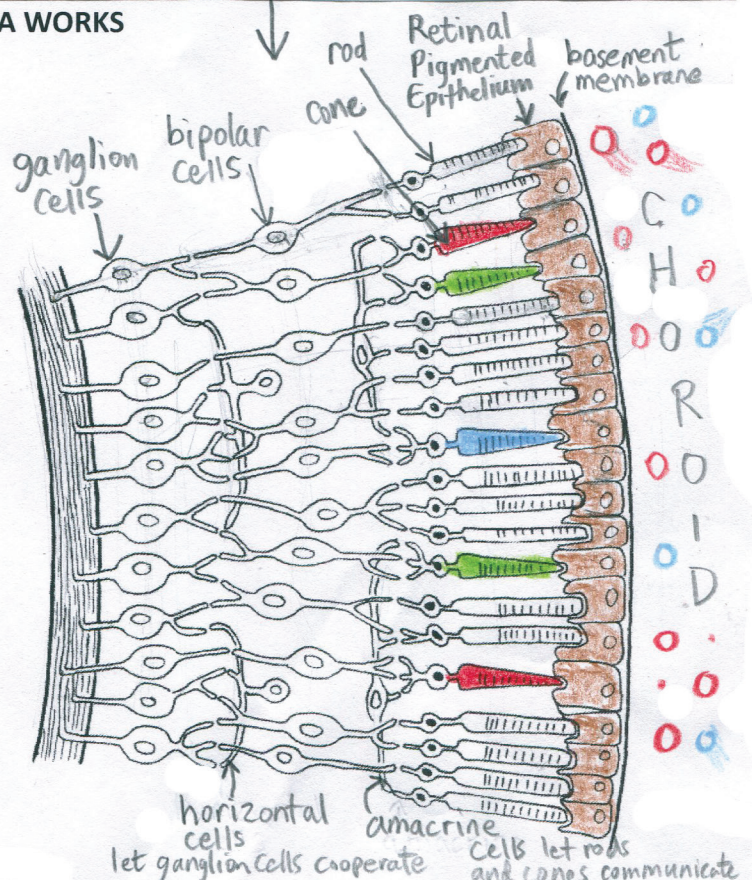 A WORKS
rod
cone
Retinal
Pigmented
Epithelium
basement
membrane
bipolar
cells
ganglion
cells
C
H
O
R
O
I
D
horizontal
cells
let ganglion cells cooperate
amacrine
cells let rods
and cones communicate